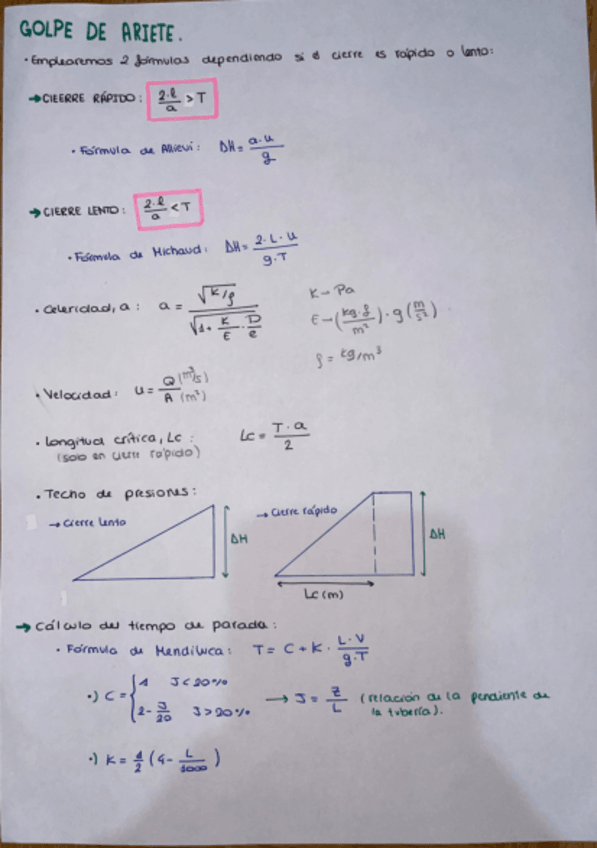 GOLPE DE ARIETE.
· Emplearemos 2 fórmulas dependiendo si el cierre es rápido o lento:
→ CIERRE RÁPIDO: 2·l/a > T
· Fórmula de Allievi: ΔH = a·u/g
→ CIERRE LENTO: 2·l/a < T
· Fórmula de Michaud: ΔH = 2·L·u/g·T
· Celeridad, a: a = √(K/ρ)/√(1+ K/E · D/e)
K → Pa
E → (kg·f/m²) · g (m/s²)
ρ = kg/m³
· Velocidad: u = Q (m³/s)/A (m²)
· Longitud crítica, Lc: Lc = T·a/2
(solo en cierre rápido)
· Techo de presiones:
→ Cierre lento
ΔH
→ Cierre rápido
ΔH
Lc (m)
→ Cálculo del tiempo de parada:
· Fórmula de Mendiluca: T = C + K · L·V/g·T
·) C = { 1 J<20%
2 - J/20 J>20%
→ J = Z/L (relación de la pendiente de
la tubería).
·) K = 1/2 (4 - L/1000)